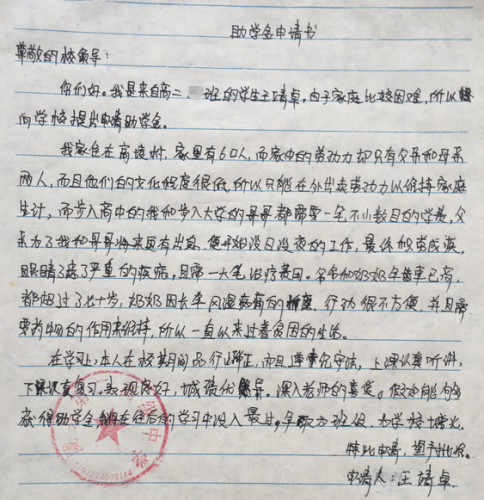 助学金申请书
尊敬的校领导:
你们好。我是来自高二 班的学生王靖卓,由于家庭比较困难,所以
向学校提出申请助学金。
我家住在高境村,家里有6口人,而家中的劳动力却只有父亲和母亲
两人,而且他们的文化程度很低,所以只能在外出卖劳动力以维持家庭
生计,而步入高中的我和步入大学的哥哥都需要一笔不小数目的学费,父
亲为了我和哥哥将来更有出息,便开始没日没夜的工作,最终积劳成疾,
眼睛了患了严重的疾病,且需一大笔治疗费用。爷爷和奶奶年龄事已高,
都超过了七十岁,奶奶因长年风湿疾病的折磨,行动很不方便,并且需
要药物的作用来维持,所以一直以来过着贫困的生活。
在学习上,本人在校其间品行端正,而且遵章纪守法,上课认真听讲,
下课认真复习,表现良好,成绩优异,深入老师的喜爱。假如能够
获得助学金 在往后的学习中没入 ,争取为班级、为学校增光
特此申请,望予批准。
申请人:王靖卓